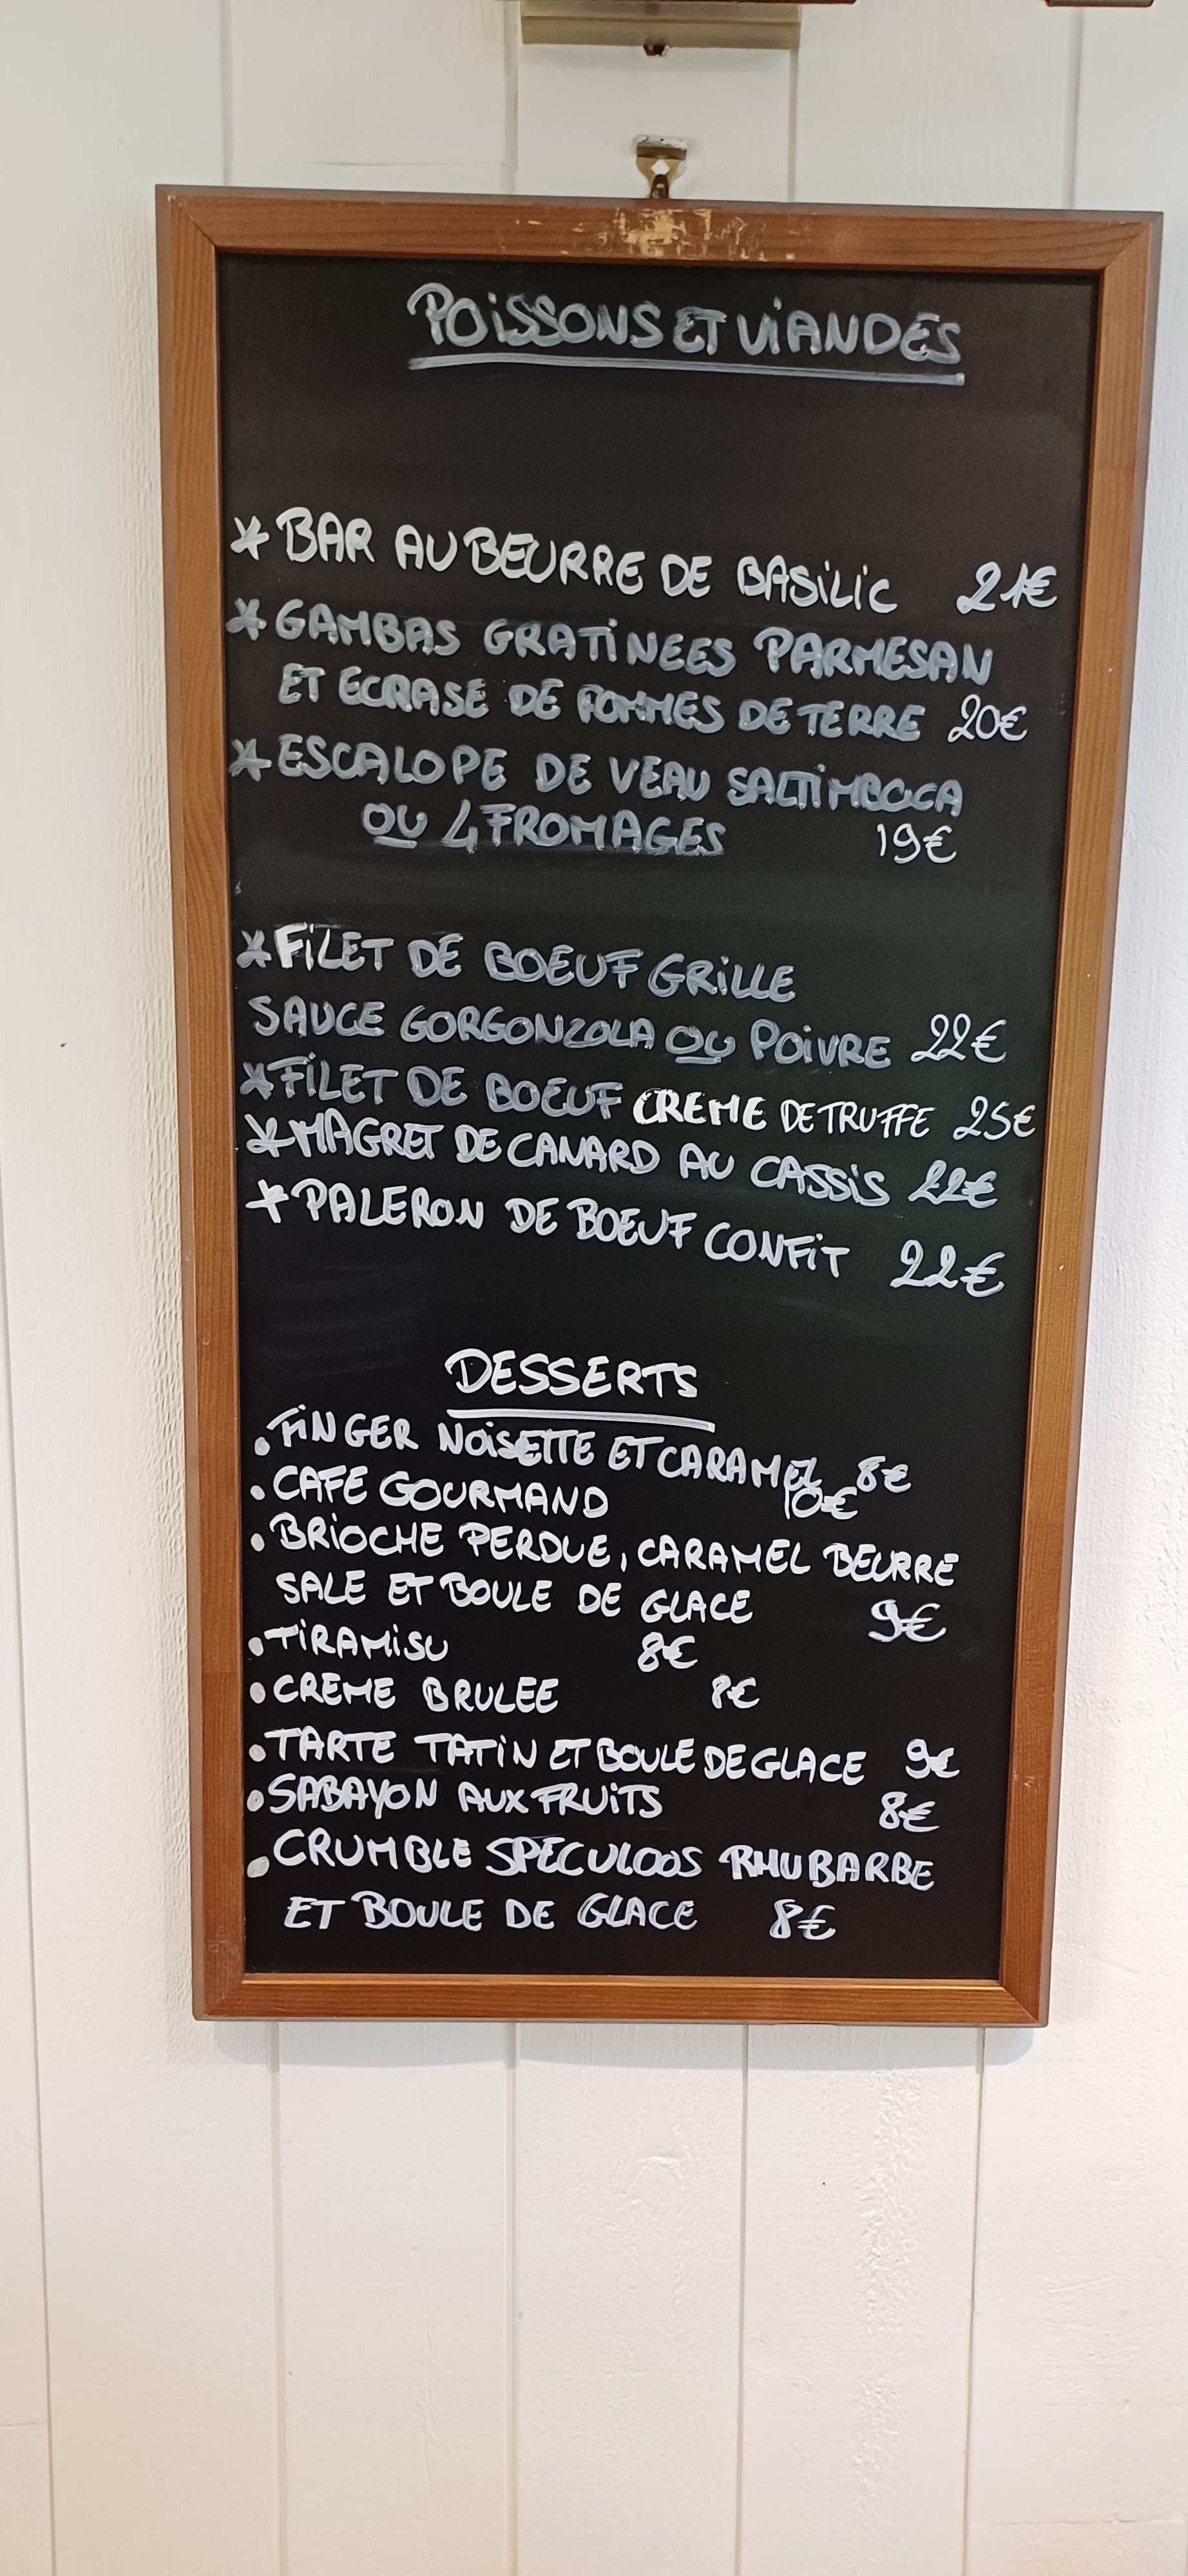 POISSONS ET VIANDES
* BAR AU BEURRE DE BASILIC 21€
* GAMBAS GRATINEES PARMESAN
ET ECRASE DE POMMES DE TERRE 20€
* ESCALOPE DE VEAU SALTIMBOCA
OU 4 FROMAGES 19€
* FILET DE BOEUF GRILLE
SAUCE GORGONZOLA OU POIVRE 22€
* FILET DE BOEUF CREME DE TRUFFE 25€
* MAGRET DE CANARD AU CASSIS 22€
* PALERON DE BOEUF CONFIT 22€
DESSERTS
• FINGER NOISETTE ET CARAMEL 8€
• CAFE GOURMAND 10€
• BRIOCHE PERDUE, CARAMEL BEURRE
SALE ET BOULE DE GLACE 9€
• TIRAMISU 8€
• CREME BRULEE 8€
• TARTE TATIN ET BOULE DE GLACE 9€
• SABAYON AUX FRUITS 8€
• CRUMBLE SPECULOOS RHUBARBE
ET BOULE DE GLACE 8€